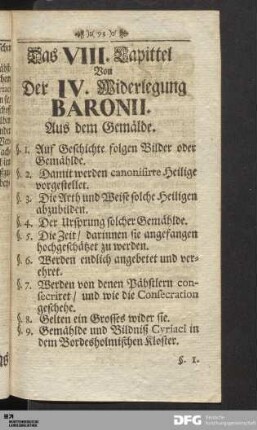 )o( 93 )o(
Das VIII. Capittel
Von
Der IV. Widerlegung
BARONII.
Aus dem Gemälde.
§. 1. Auf Geschichte folgen Bilder oder
Gemählde.
§. 2. Damit werden canonisirte Heilige
vorgestellet.
§. 3. Die Arth und Weise solche Heiligen
abzubilden.
§. 4. Der Ursprung solcher Gemählde.
§. 5. Die Zeit/ darinnen sie angefangen
hochgeschätzet zu werden.
§. 6. Werden endlich angebetet und ver-
ehret.
§. 7. Werden von denen Päbstlern con-
secriret/ und wie die Consecration
geschehe.
§. 8. Gelten ein Grosses wider sie.
§. 9. Gemählde und Bildniß Cyriaci in
dem Bordesholmischen Kloster.
§. 1.
DFG